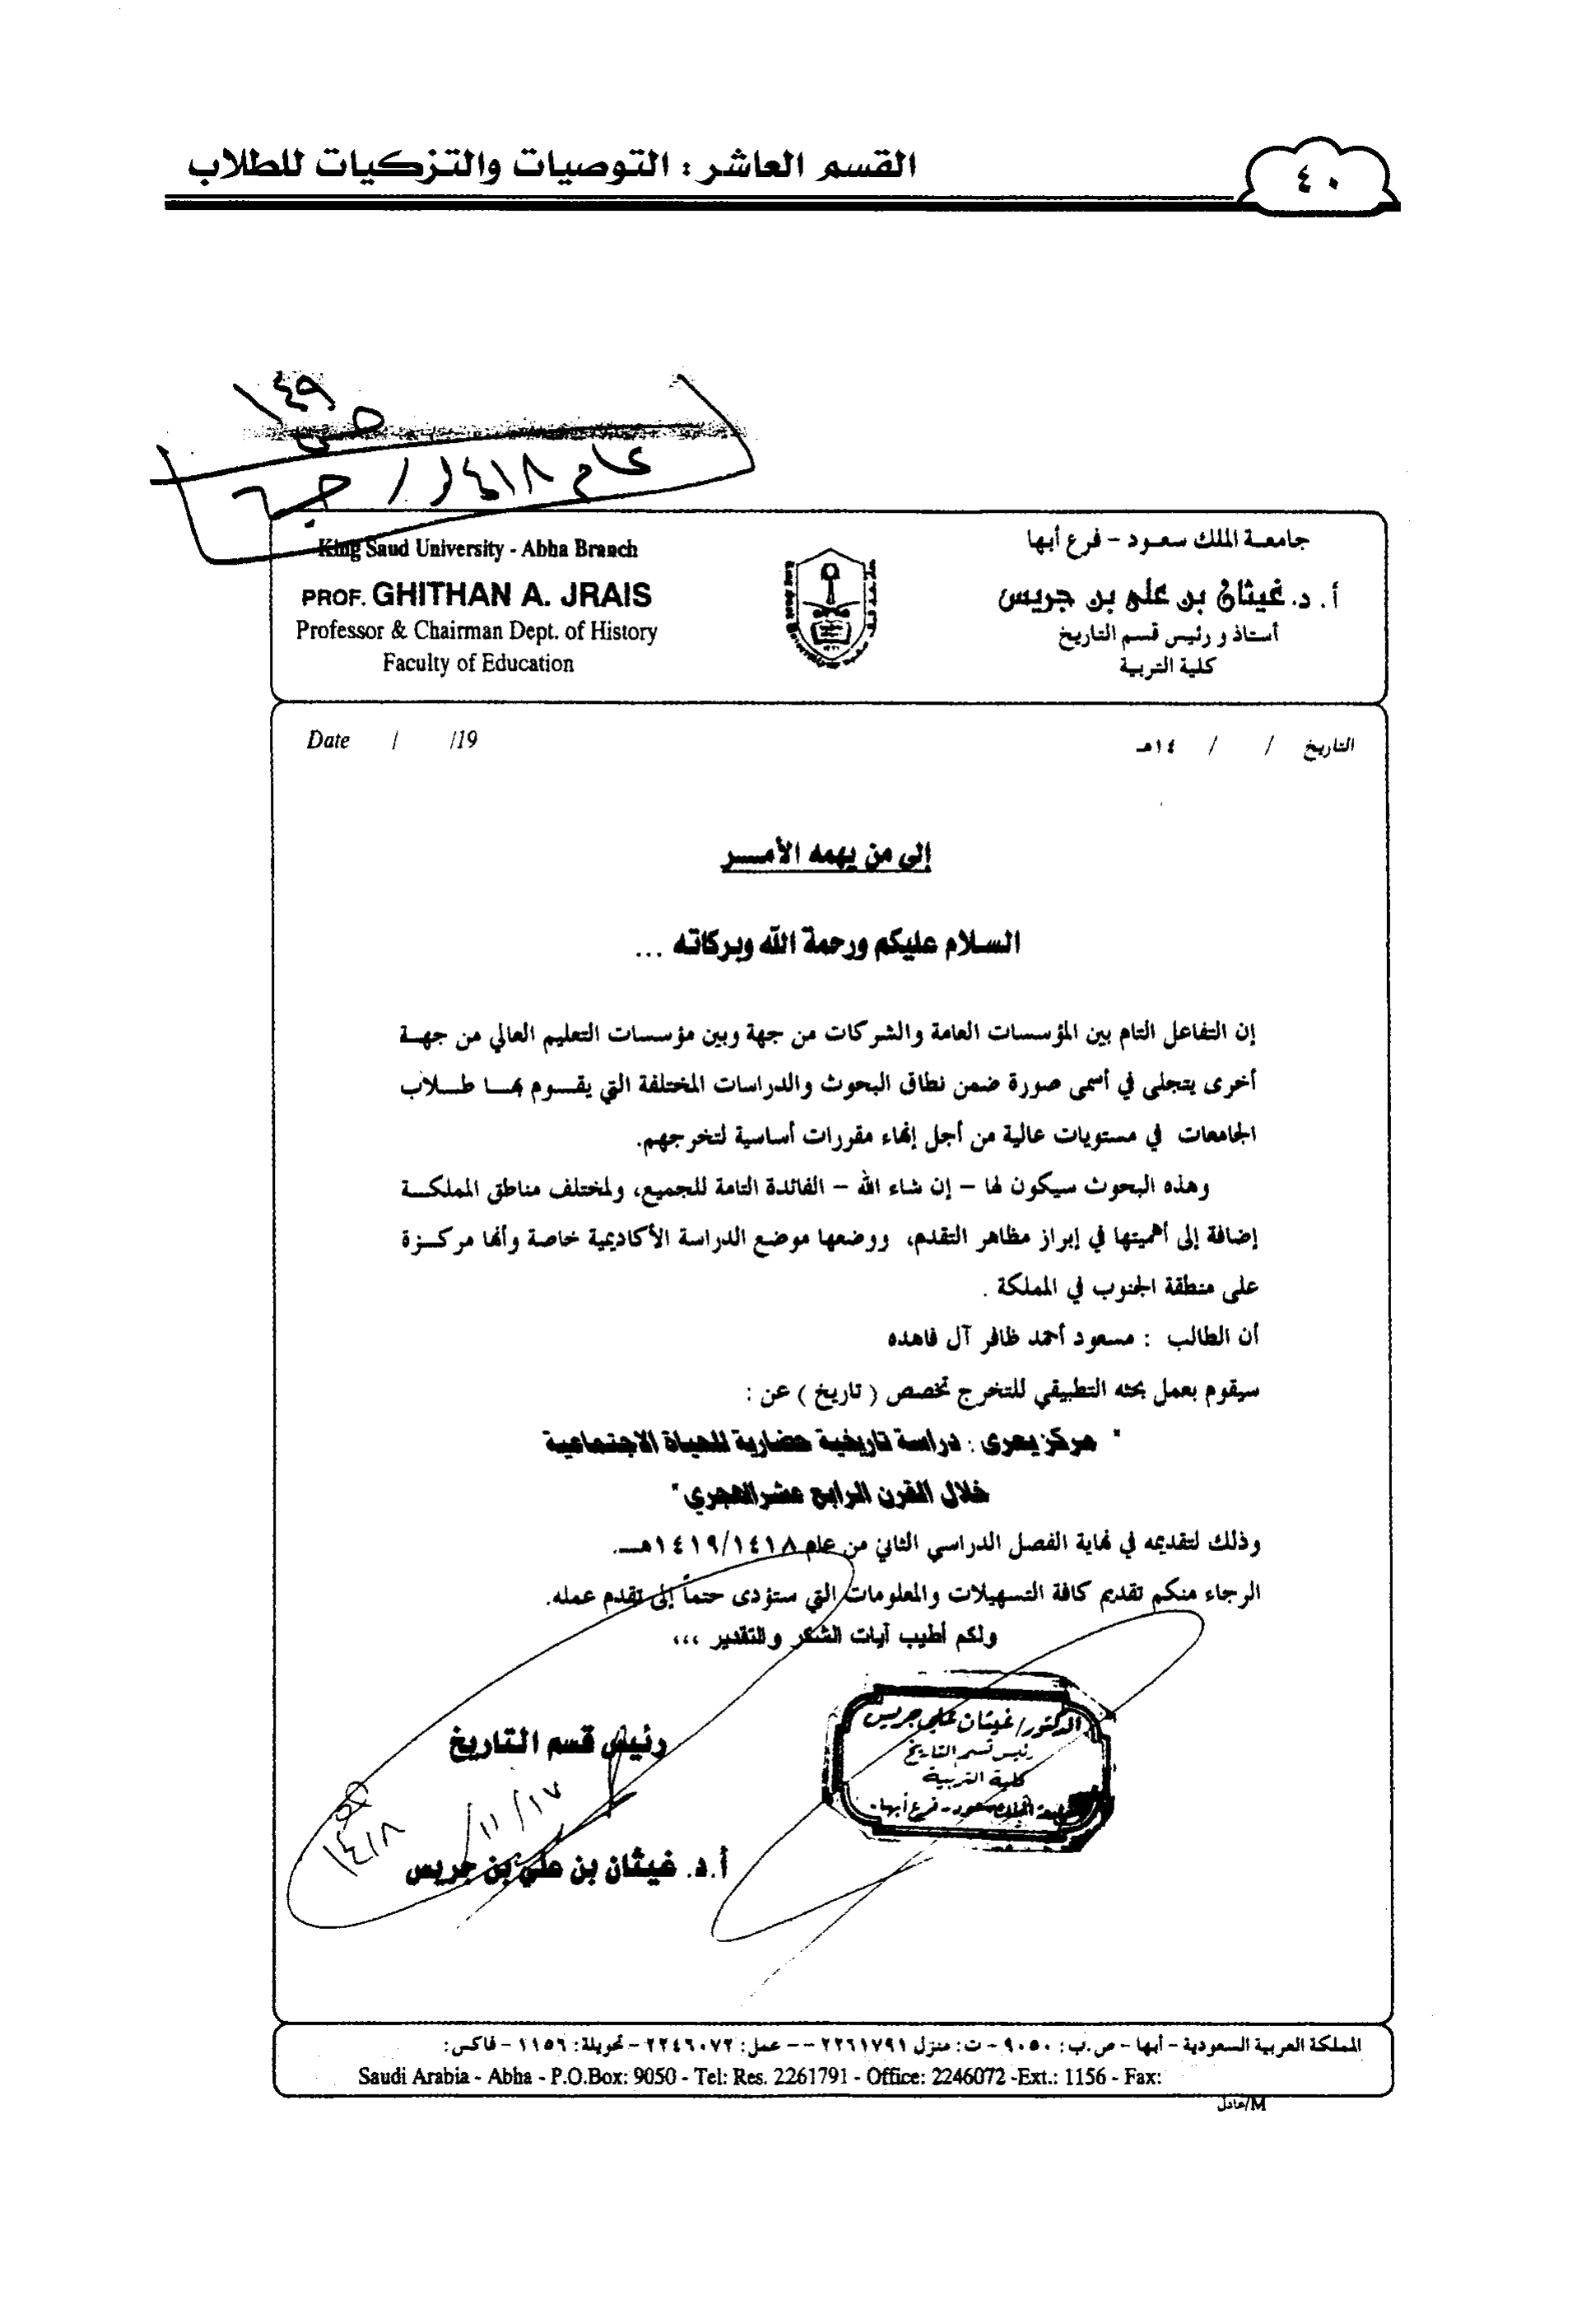 القسم العاشر : التوصيات والتزكيات للطلاب
٤٠
ص ١٤٩
عام ١٤١٨
King Saud University - Abha Branch
PROF. GHITHAN A. JRAIS
Professor & Chairman Dept. of History
Faculty of Education
جامعة الملك سعود - فرع أبها
أ. د. غيثان بن علي بن جريس
أستاذ و رئيس قسم التاريخ
كلية التربية
Date / /19
التاريخ / / ١٤هـ
إلى من يهمه الأمـــر
السلام عليكم ورحمة الله وبركاته ...
إن التفاعل التام بين المؤسسات العامة والشركات من جهة وبين مؤسسات التعليم العالي من جهـة
أخرى يتجلى في أسمى صورة ضمن نطاق البحوث والدراسات المختلفة التي يقـوم بهـا طـلاب
الجامعات في مستويات عالية من أجل إنهاء مقررات أساسية لتخرجهم.
وهذه البحوث سيكون لها – إن شاء الله – الفائدة التامة للجميع، ولمختلف مناطق المملكـة
إضافة إلى أهميتها في إبراز مظاهر التقدم، ووضعها موضع الدراسة الأكاديمية خاصة وأنها مركـزة
على منطقة الجنوب في المملكة .
أن الطالب : مسعود أحمد ظافر آل فاهده
سيقوم بعمل بحثه التطبيقي للتخرج تخصص ( تاريخ ) عن :
" مركز يعرى : دراسة تاريخية حضارية للحياة الاجتماعية
خلال القرن الرابع عشر الهجري"
وذلك لتقديمه في نهاية الفصل الدراسي الثاني من عام ١٤١٩/١٤١٨هـ.
الرجاء منكم تقديم كافة التسهيلات والمعلومات التي ستؤدى حتماً إلى تقدم عمله.
ولكم أطيب آيات الشكر والتقدير ،،،
الدكتور/ غيثان علي جريس
رئيس قسم التاريخ
كلية التربية
جامعة الملك سعود - فرع أبها.
رئيس قسم التاريخ
١٧/١١/١٤١٨هـ
أ.د. غيثان بن علي بن جريس
المملكة العربية السعودية - أبها - ص.ب: ٩٠٥٠ - ت: منزل ٢٢٦١٧٩١ -- عمل: ٢٢٤٦٠٧٢ - تحويلة: ١١٥٦ - فاكس:
Saudi Arabia - Abha - P.O.Box: 9050 - Tel: Res. 2261791 - Office: 2246072 -Ext.: 1156 - Fax:
M/عادل